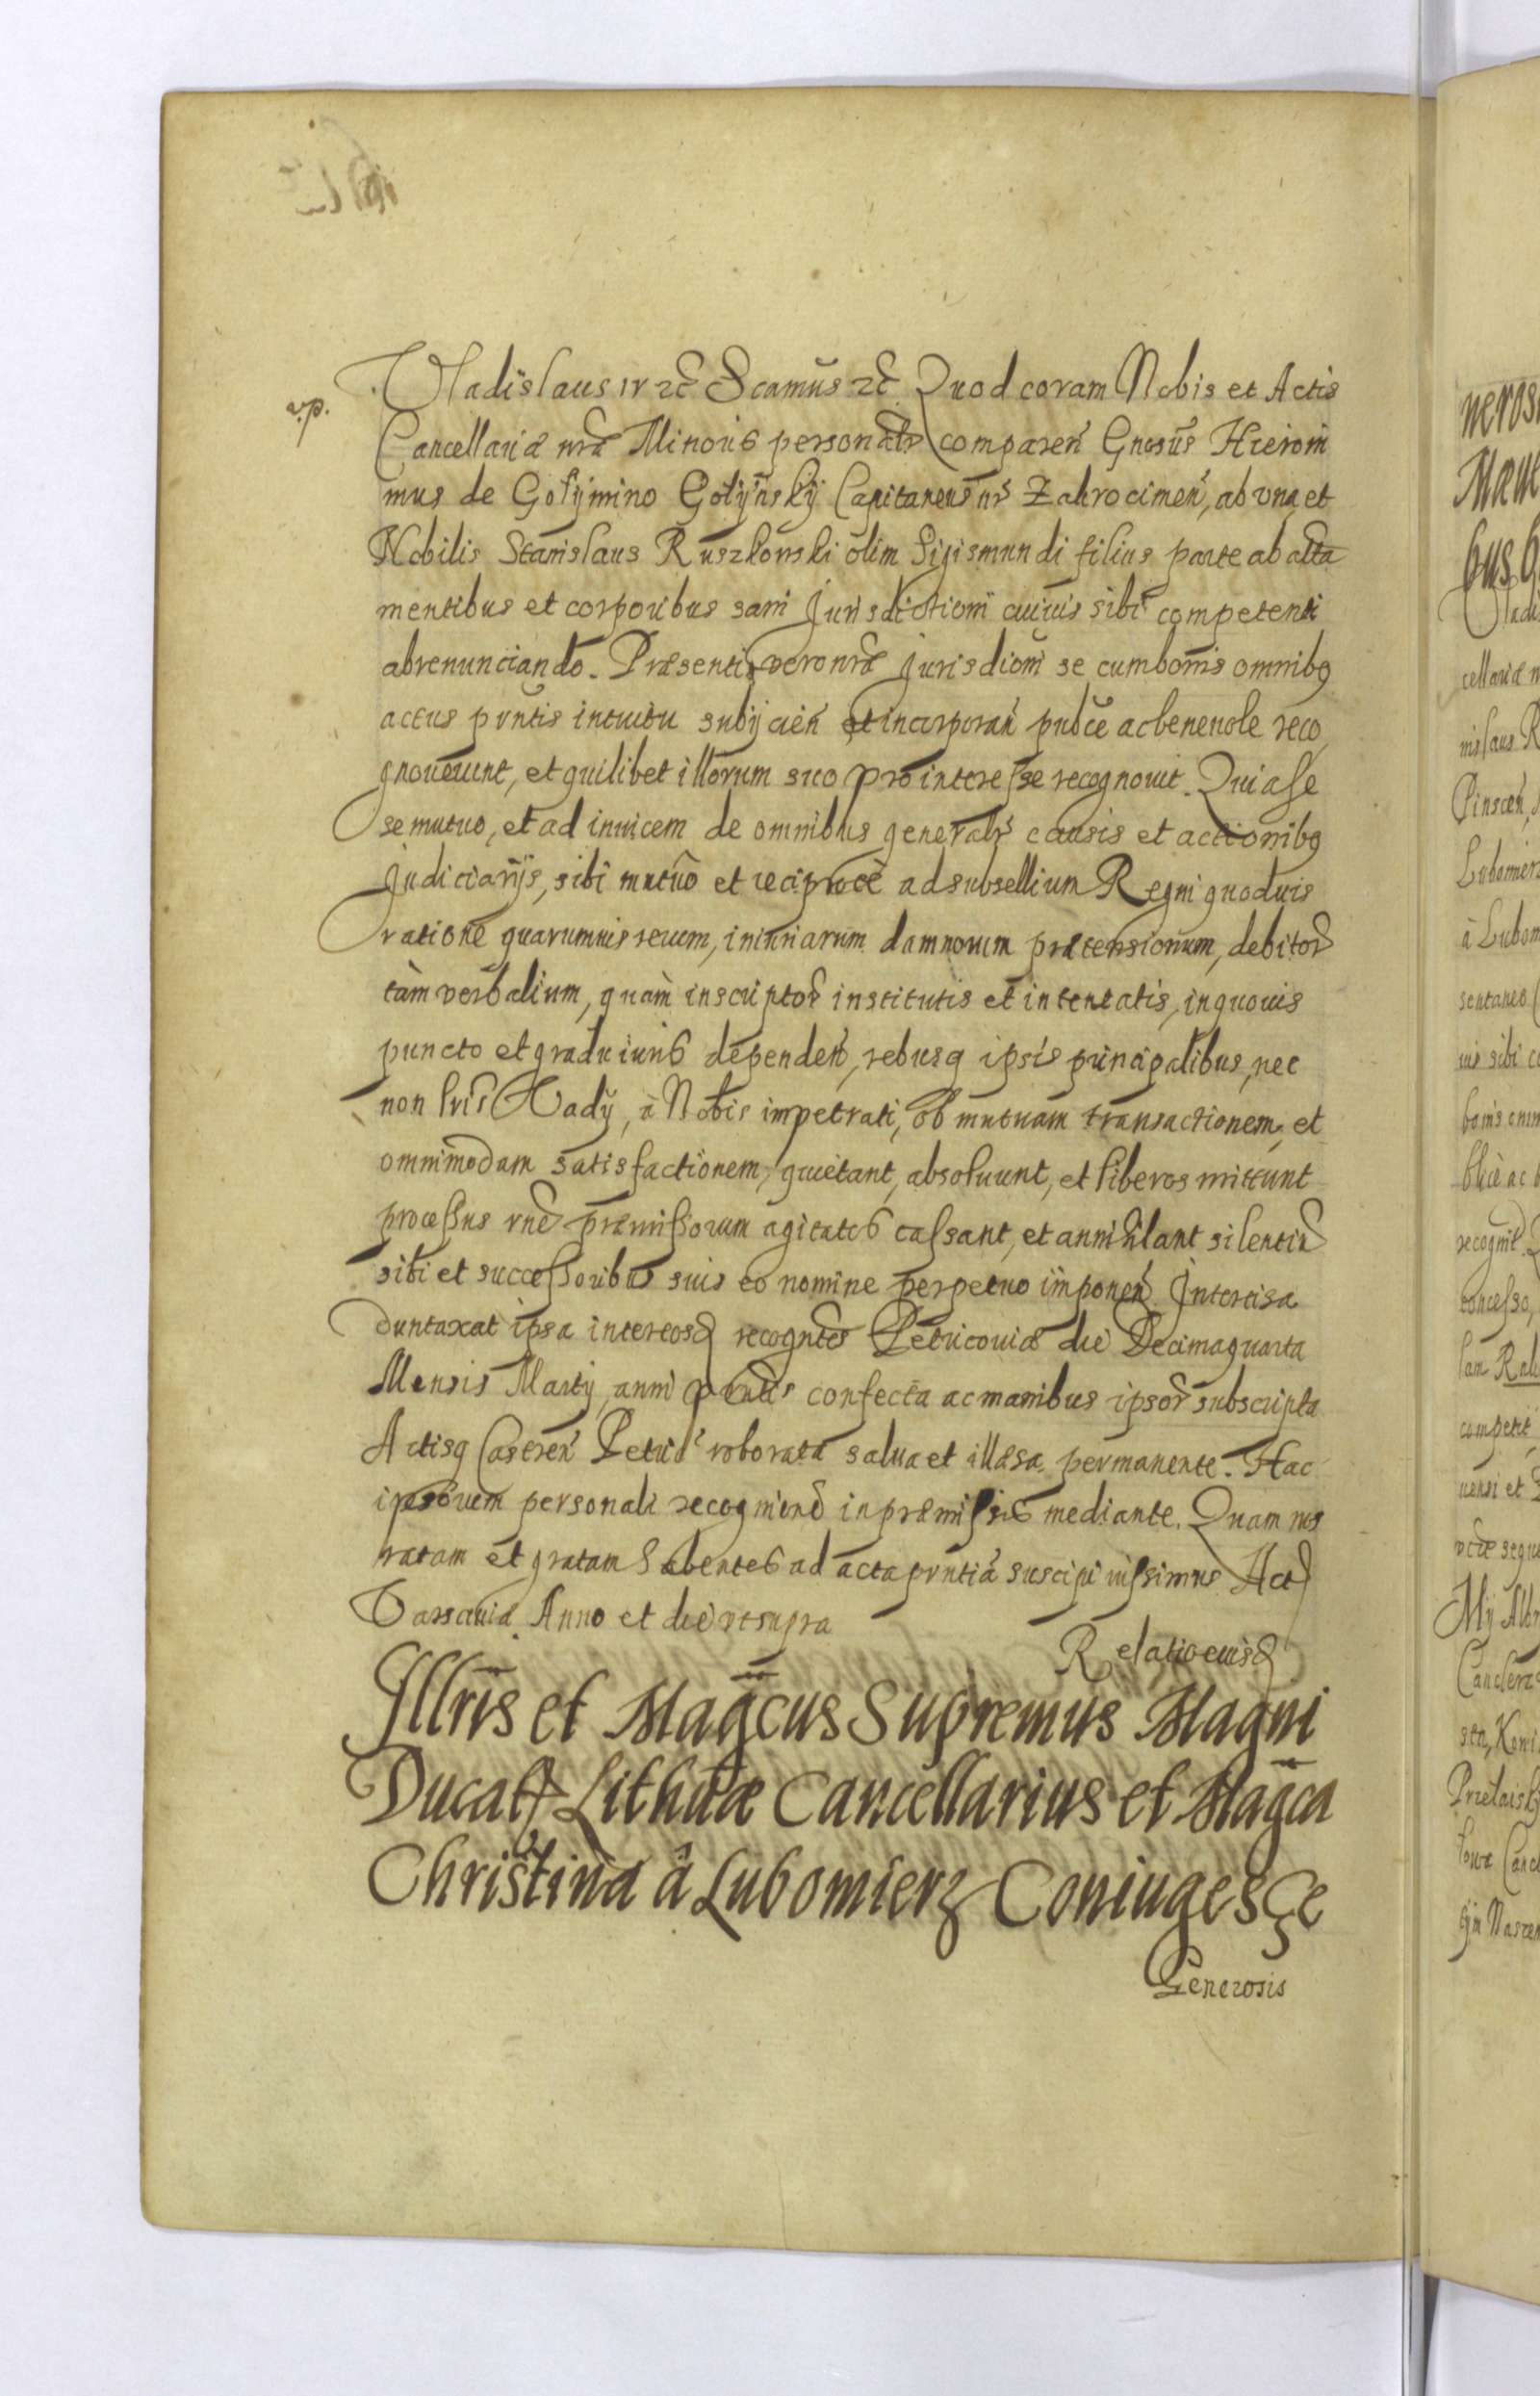 v.p.
Vladislaus IV etc̃ Scamus̃ etc̃ Quod coram Nobis et Actis
Cancellariæ nræ Minoris personalr comparen̄ Gnosus̃ Hieroni
mus de Golymino Golÿnskÿ Capitaneus nr̃ Zakrocimen̄, ab vna, et
Nobilis Stanislaus Ruszkowski olim Sigismundi filius parte ab alta
mentibus et corporibus sani Jurisdictioni cuiuis sibi competenti
abrenunciando. Præsenti vero nræ Jurisdioni se cum bonis omnibꝫ
actus pntis intuitu subijcien̄ et incorporan̄ publce ac beneuole reco
gnouerunt, et quilibet illorum suo pro interesse recognouit. Quia se
se mutuo, et ad inuicem de omnibus generalr̃ causis et actionibꝫ
Judiciarijs, sibi mutuò et reciprocè ad subsellium Regni quoduis
ratione quarumuis rerum, iniuriarum damnorum prætensionum, debitor
tàm verbalium, quàm inscriptor institutis et intentatis, in quouis
puncto et gradu iuris dependen̄, rebusq ipsis principalibus, nec
non lris Vadÿ, à Nobis impetrati, ob mutuam transactionem, et
omnimodam satisfactionem, quietant, absoluunt, et liberos mittunt
processus rne præmissorum agitatos cassant, et annihilant silentiu
sibi et successoribus suis eo nomine perpetuo imponen̄ Intercisa
duntaxat ipsa inter eosd recogntes Petricouiæ die Decima quarta
Mensis Martÿ, anni pntis confecta ac manibus ipsor subscripta
Actisq Castren̄ Petric̃ roborata salua et illæsa permanente. Hac
ipsorum personali recognione in præmissis mediante. Quam nos
ratam et gratam habentes ad acta pntia suscipi iussimus Act
Varsauiæ Anno et die vt supra
Relatio eiusd
Illris et Magcus Supremus Magni
Ducatꝫ Lithuæ Cancellarius et Magca
Christina à Lubomierz Coniuges Ge
Generosis